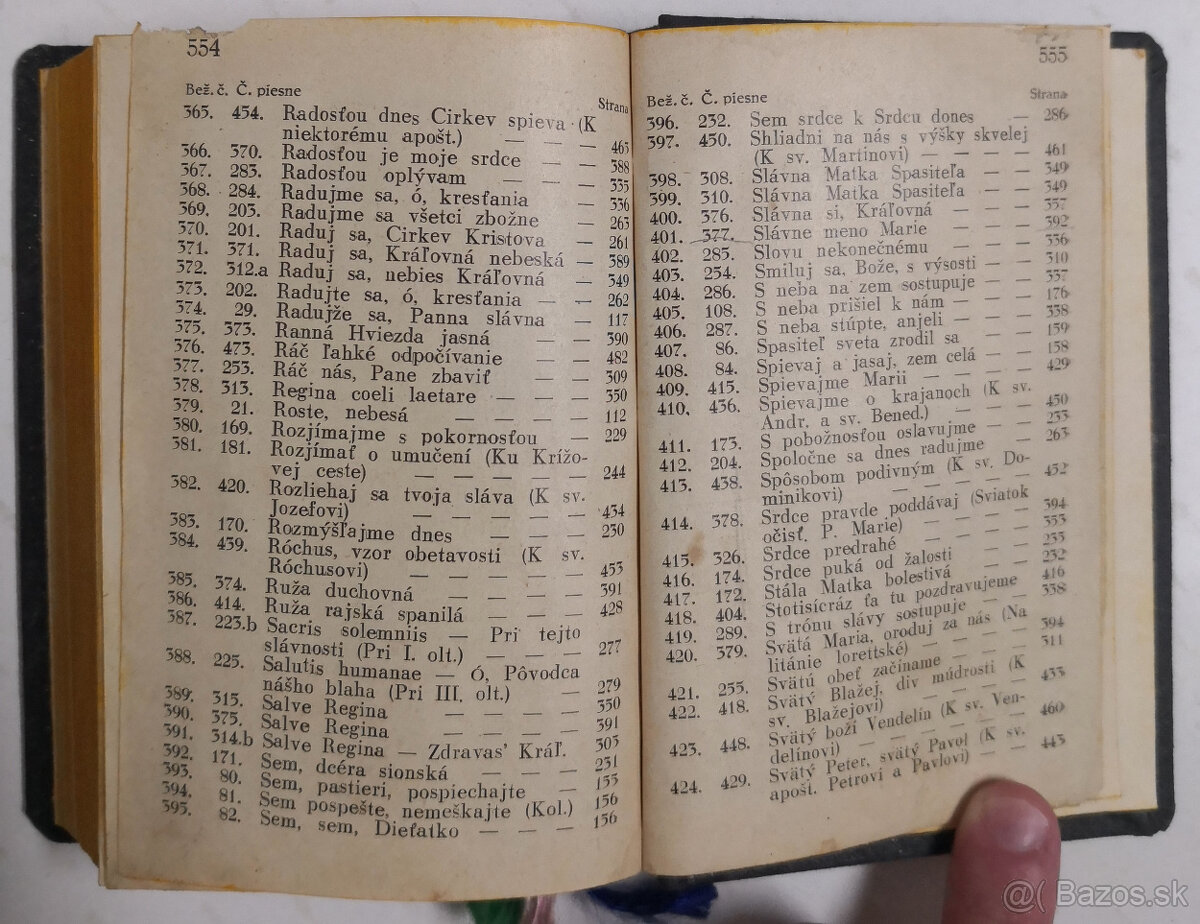 554
Bež. č. Č. piesne Strana
365. 454. Radosťou dnes Cirkev spieva (K
niektorému apošt.) — — — 465
366. 370. Radosťou je moje srdce — — 388
367. 283. Radosťou oplývam — — — 335
368. 284. Radujme sa, ó, kresťania — — 336
369. 203. Radujme sa všetci zbožne — 263
370. 201. Raduj sa, Cirkev Kristova — 261
371. 371. Raduj sa, Kráľovná nebeská — 389
372. 312.a Raduj sa, nebies Kráľovná — 349
373. 202. Radujte sa, ó, kresťania — — 262
374. 29. Radujže sa, Panna slávna — 117
375. 373. Ranná Hviezda jasná — — 390
376. 473. Ráč ľahké odpočívanie — — 482
377. 253. Ráč nás, Pane zbaviť — — 309
378. 313. Regina coeli laetare — — — 350
379. 21. Roste, nebesá — — — — 112
380. 169. Rozjímajme s pokornosťou — 229
381. 181. Rozjímať o umučení (Ku Krížo-
vej ceste) — — — — 244
382. 420. Rozliehaj sa tvoja sláva (K sv.
Jozefovi) — — — — — 434
383. 170. Rozmýšľajme dnes — — — 230
384. 439. Róchus, vzor obetavosti (K sv.
Róchusovi) — — — — 453
385. 374. Ruža duchovná — — — — 391
386. 414. Ruža rajská spanilá — — — 428
387. 223.b Sacris solemniis — Pri tejto
slávnosti (Pri I. olt.) — — — 277
388. 225. Salutis humanae — Ó, Pôvodca
nášho blaha (Pri III. olt.) — 279
389. 315. Salve Regina — — — — 350
390. 375. Salve Regina — — — — 391
391. 314.b Salve Regina — Zdravas' Kráľ. 303
392. 171. Sem, dcéra sionská — — — 231
393. 80. Sem, pastieri, pospiechajte — 155
394. 81. Sem pospešte, nemeškajte (Kol.) 156
395. 82. Sem, sem, Dieťatko — — — 156
555
Bež. č. Č. piesne Strana
396. 232. Sem srdce k Srdcu dones — 286
397. 450. Shliadni na nás s výšky skvelej
(K sv. Martinovi) — — — — 461
398. 308. Slávna Matka Spasiteľa — — 349
399. 310. Slávna Matka Spasiteľa — — 349
400. 376. Slávna si, Kráľovná — — — 337
401. 377. Slávne meno Marie — — — 392
402. 285. Slovu nekonečnému — — — 336
403. 254. Smiluj sa, Bože, s výsosti — — 310
404. 286. S neba na zem sostupuje — — 337
405. 108. S neba prišiel k nám — — — 176
406. 287. S neba stúpte, anjeli — — — 338
407. 86. Spasiteľ sveta zrodil sa — — 159
408. 84. Spievaj a jasaj, zem celá — — 158
409. 415. Spievajme Marii — — — — 429
410. 436. Spievajme o krajanoch (K sv.
Andr. a sv. Bened.) — — — 450
411. 173. S pobožnosťou oslavujme — — 233
412. 204. Spoločne sa dnes radujme — 263
413. 438. Spôsobom podivným (K sv. Do-
minikovi) — — — — — 452
414. 378. Srdce pravde poddávaj (Sviatok
očisť. P. Marie) — — — — 394
415. 326. Srdce predrahé — — — — 353
416. 174. Srdce puká od žalosti — — 233
417. 172. Stála Matka bolestivá — — 232
418. 404. Stotisícráz ťa tu pozdravujeme 416
419. 289. S trónu slávy sostupuje — — 338
420. 379. Svätá Maria, oroduj za nás (Na
litánie lorettské) — — — — 394
421. 255. Svätú obeť začíname — — — 311
422. 418. Svätý Blažej, div múdrosti (K
sv. Blažejovi) — — — — 433
423. 448. Svätý boží Vendelín (K sv. Ven-
delínovi) — — — — — 460
424. 429. Svätý Peter, svätý Pavol (K sv.
apošt. Petrovi a Pavlovi) — — 443
@( Bazos.sk